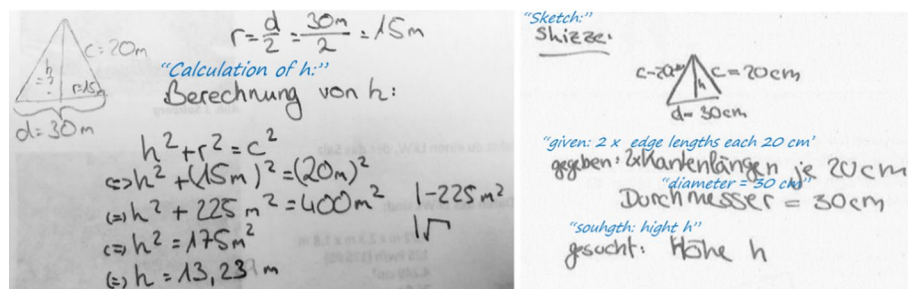 r = d/2 = 30m/2 = 15m
c = 20m
h = ?
r = 15m
d = 30m
“Calculation of h:”
Berechnung von h:
h² + r² = c²
⇔ h² + (15m)² = (20m)²
⇔ h² + 225 m² = 400m² | -225 m²
⇔ h² = 175m² | √
⇔ h = 13,23 m
“Sketch:”
Skizze:
c=20cm
c = 20cm
h
d= 30cm
“given: 2 x edge lengths each 20 cm‘
gegeben: 2x Kantenlängen je 20cm
“diameter = 30 cm”
Durchmesser = 30cm
“souhgth: hight h”
gesucht: Höhe h